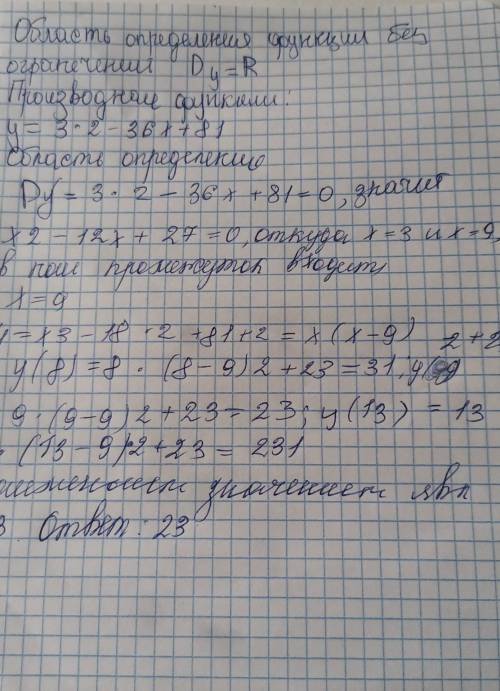 Область определения функции без
ограпечений Dy=R
Производная функции:
y= 3·2-36x+81
Область определению
Dy= 3· 2-36x+81=0, значит
x2-12x+ 27=0, откуда x=3 и x=9,
в наш промежуток входит
x=9
=x3-18 ·2 +81+2= x(x-9) 2+2
y(8)=8 · (8-9)2+23=31; y(
9·(9-9)2+23=23; y(13) =13
(13-9)2+23= 231
значением явл
3 Ответ: 23